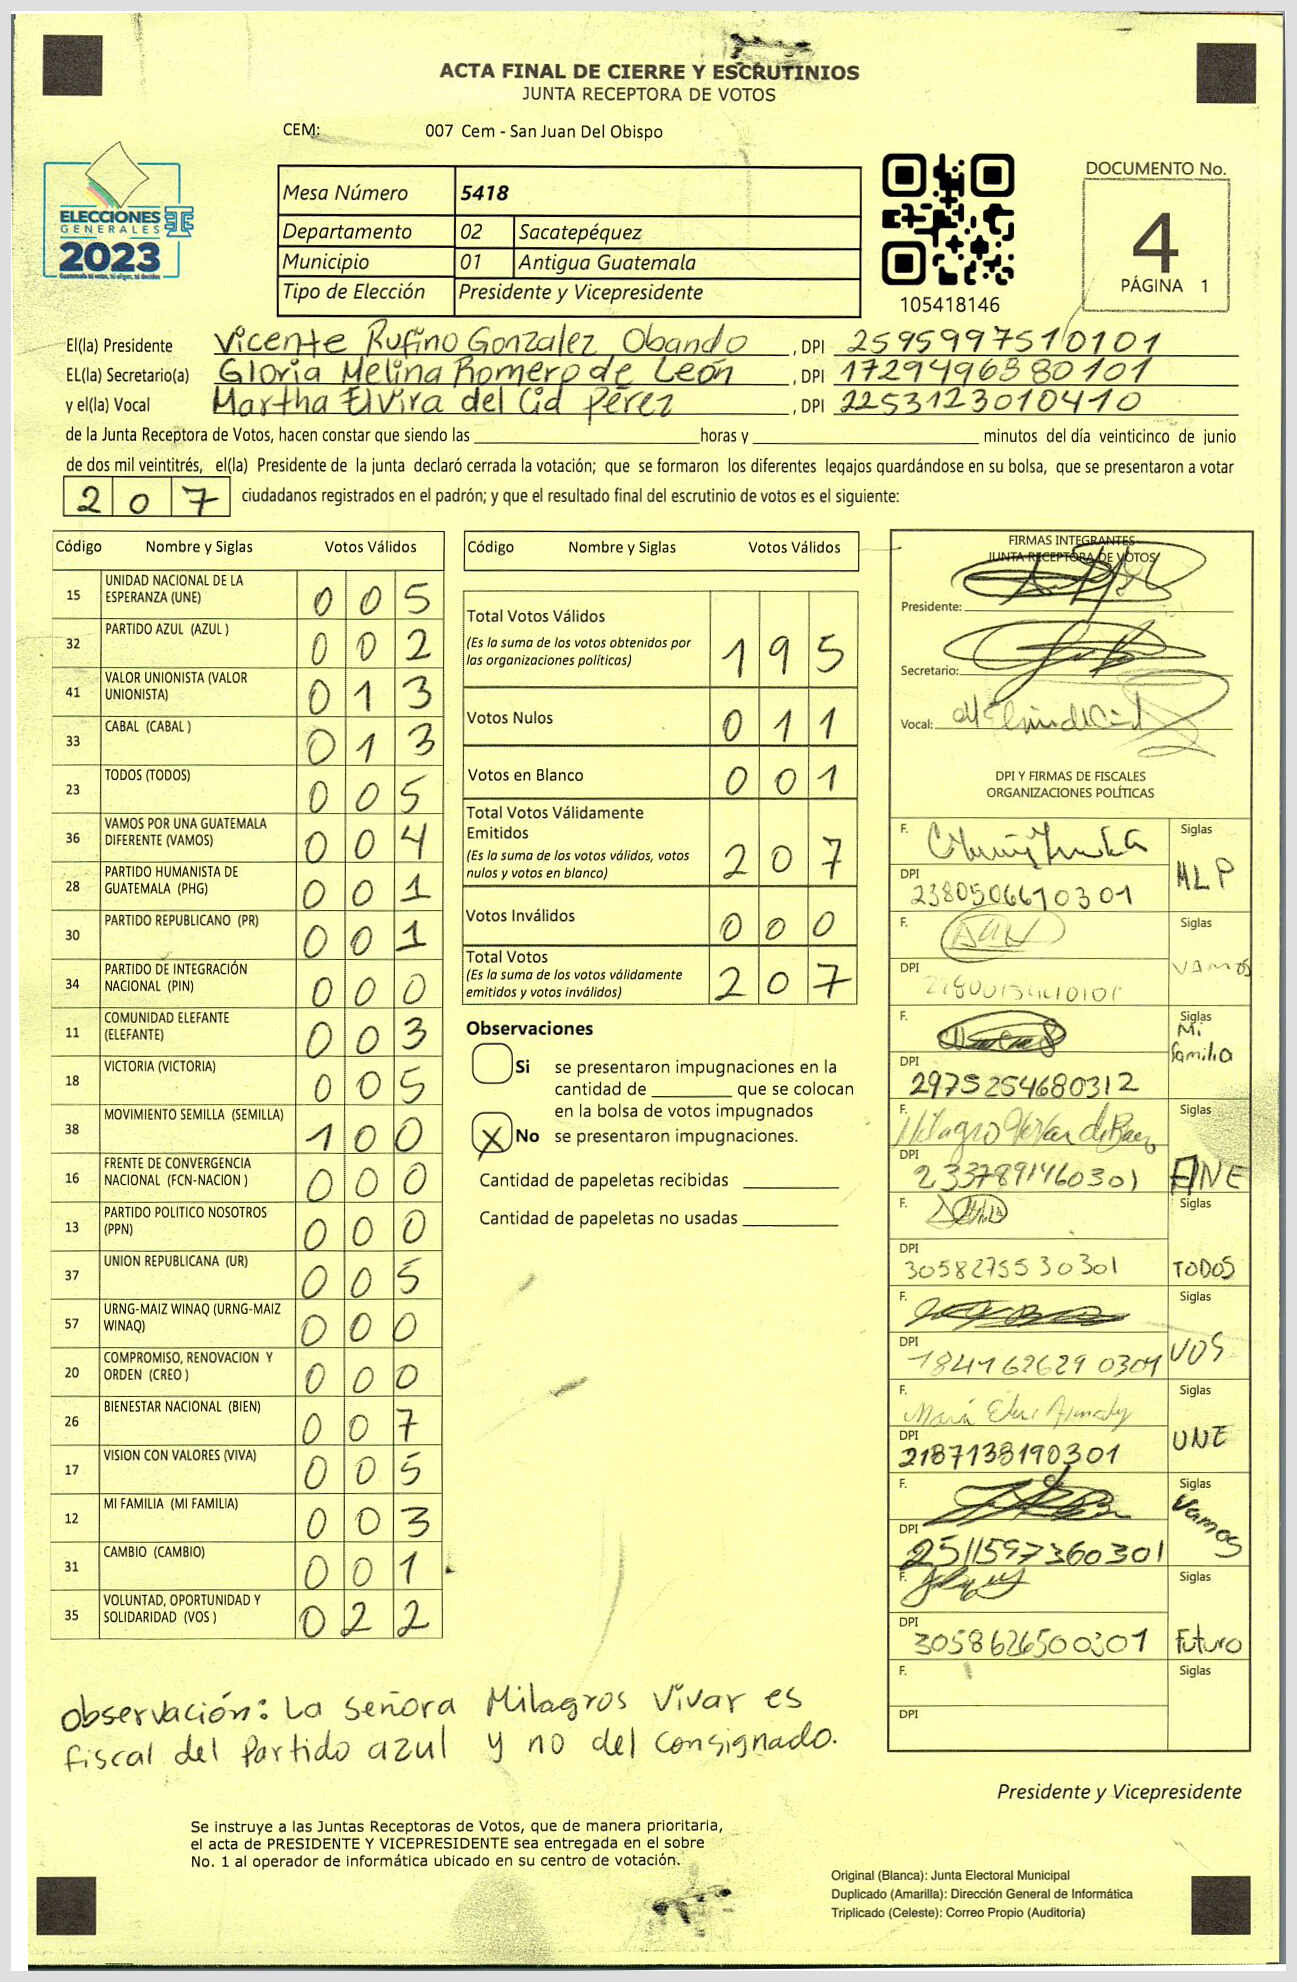 ACTA FINAL DE CIERRE Y ESCRUTINIOS
JUNTA RECEPTORA DE VOTOS
CEM: 007 Cem - San Juan Del Obispo
ELECCIONES
GENERALES
2023
Mesa Número 5418
Departamento 02 Sacatepéquez
Municipio 01 Antigua Guatemala
Tipo de Elección Presidente y Vicepresidente
105418146
DOCUMENTO No.
4
PÁGINA 1
El(la) Presidente Vicente Rufino Gonzalez Obando, DPI 2595997510101
EL(la) Secretario(a) Gloria Melina Romero de León, DPI 1729496380101
y el(la) Vocal Martha Elvira del Cid Pérez, DPI 2253123010410
de la Junta Receptora de Votos, hacen constar que siendo las ____ horas y ____ minutos del día veinticinco de junio
de dos mil veintitrés, el(la) Presidente de la junta declaró cerrada la votación; que se formaron los diferentes legajos guardándose en su bolsa, que se presentaron a votar
207 ciudadanos registrados en el padrón; y que el resultado final del escrutinio de votos es el siguiente:
Código Nombre y Siglas Votos Válidos
15 UNIDAD NACIONAL DE LA ESPERANZA (UNE) 005
32 PARTIDO AZUL (AZUL ) 002
41 VALOR UNIONISTA (VALOR UNIONISTA) 013
33 CABAL (CABAL ) 013
23 TODOS (TODOS) 005
36 VAMOS POR UNA GUATEMALA DIFERENTE (VAMOS) 004
28 PARTIDO HUMANISTA DE GUATEMALA (PHG) 001
30 PARTIDO REPUBLICANO (PR) 001
34 PARTIDO DE INTEGRACIÓN NACIONAL (PIN) 000
11 COMUNIDAD ELEFANTE (ELEFANTE) 003
18 VICTORIA (VICTORIA) 005
38 MOVIMIENTO SEMILLA (SEMILLA) 100
16 FRENTE DE CONVERGENCIA NACIONAL (FCN-NACION ) 000
13 PARTIDO POLITICO NOSOTROS (PPN) 000
37 UNION REPUBLICANA (UR) 005
57 URNG-MAIZ WINAQ (URNG-MAIZ WINAQ) 000
20 COMPROMISO, RENOVACION Y ORDEN (CREO ) 000
26 BIENESTAR NACIONAL (BIEN) 007
17 VISION CON VALORES (VIVA) 005
12 MI FAMILIA (MI FAMILIA) 003
31 CAMBIO (CAMBIO) 001
35 VOLUNTAD, OPORTUNIDAD Y SOLIDARIDAD (VOS ) 022
Código Nombre y Siglas Votos Válidos
Total Votos Válidos 195
(Es la suma de los votos obtenidos por las organizaciones políticas)
Votos Nulos 011
Votos en Blanco 001
Total Votos Válidamente Emitidos 207
(Es la suma de los votos válidos, votos nulos y votos en blanco)
Votos Inválidos 000
Total Votos 207
(Es la suma de los votos válidamente emitidos y votos inválidos)
Observaciones
Si se presentaron impugnaciones en la
cantidad de ____ que se colocan
en la bolsa de votos impugnados
X No se presentaron impugnaciones.
Cantidad de papeletas recibidas ____
Cantidad de papeletas no usadas ____
FIRMAS INTEGRANTES
JUNTA RECEPTORA DE VOTOS
Presidente:
Secretario:
Vocal:
DPI Y FIRMAS DE FISCALES
ORGANIZACIONES POLÍTICAS
F. Siglas MLP
DPI 2380506670301
F. Siglas VAMOS
DPI
F. Siglas Mi familia
DPI 2975254680312
F. Siglas UNE
DPI 2337891460301
F. Siglas TODOS
DPI 3058275530301
F. Siglas VOS
DPI 1841626290301
F. Siglas UNE
DPI 2187138190301
F. Siglas Vamos
DPI 2511597360301
F. Siglas Futuro
DPI 3058626500301
F. Siglas
DPI
observación: La señora Milagros Vivar es
fiscal del Partido azul y no del consignado.
Presidente y Vicepresidente
Se instruye a las Juntas Receptoras de Votos, que de manera prioritaria,
el acta de PRESIDENTE Y VICEPRESIDENTE sea entregada en el sobre
No. 1 al operador de informática ubicado en su centro de votación.
Original (Blanca): Junta Electoral Municipal
Duplicado (Amarilla): Dirección General de Informática
Triplicado (Celeste): Correo Propio (Auditoría)